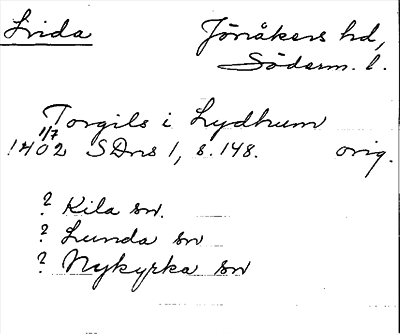 Lida Jönåkers hd,
Söderm. l.
Torgils i Lydhum
1/7
1402 SDns 1, s. 148. orig.
? Kila sn.
? Lunda sn
? Nykyrka sn